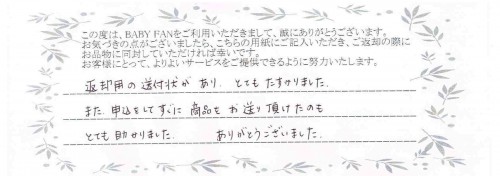 この度は、BABY FANをご利用いただきまして、誠にありがとうございます。
お気づきの点がございましたら、こちらの用紙にご記入いただき、ご返却の際に
お品物に同封していただければ幸いです。
お客様にとって、よりよいサービスをご提供できるように努力いたします。
返却用の送付状があり、とてもたすかりました。
また、申込をしてすぐに商品をお送り頂けたのも
とても助かりました。 ありがとうございました。